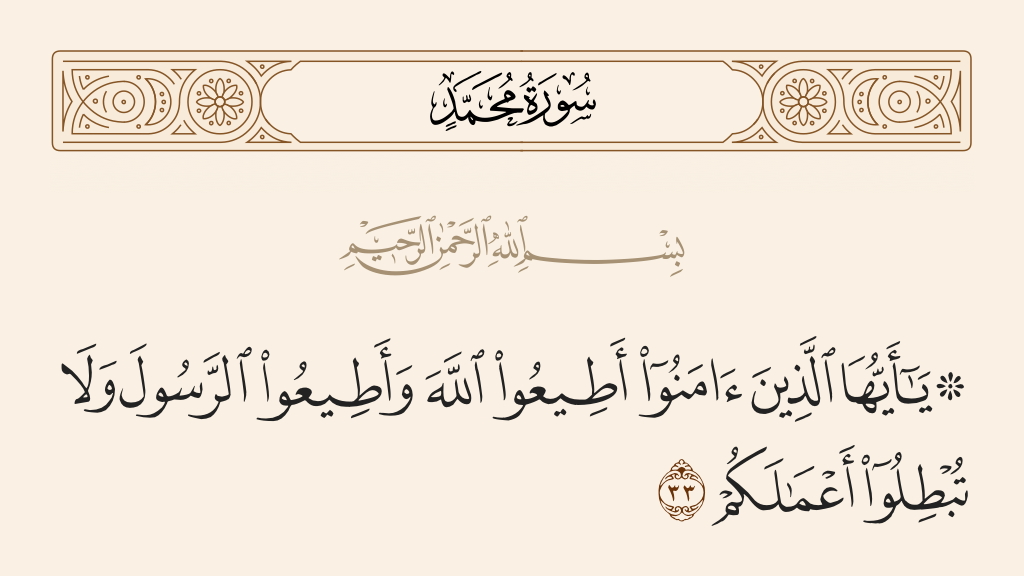 سُورَةُ مُحَمَّدٍ
بِسْمِ ٱللَّهِ ٱلرَّحْمَٰنِ ٱلرَّحِيمِ
۞ يَـٰٓأَيُّهَا ٱلَّذِينَ ءَامَنُوٓا۟ أَطِيعُوا۟ ٱللَّهَ وَأَطِيعُوا۟ ٱلرَّسُولَ وَلَا
تُبْطِلُوٓا۟ أَعْمَـٰلَكُمْ ٣٣